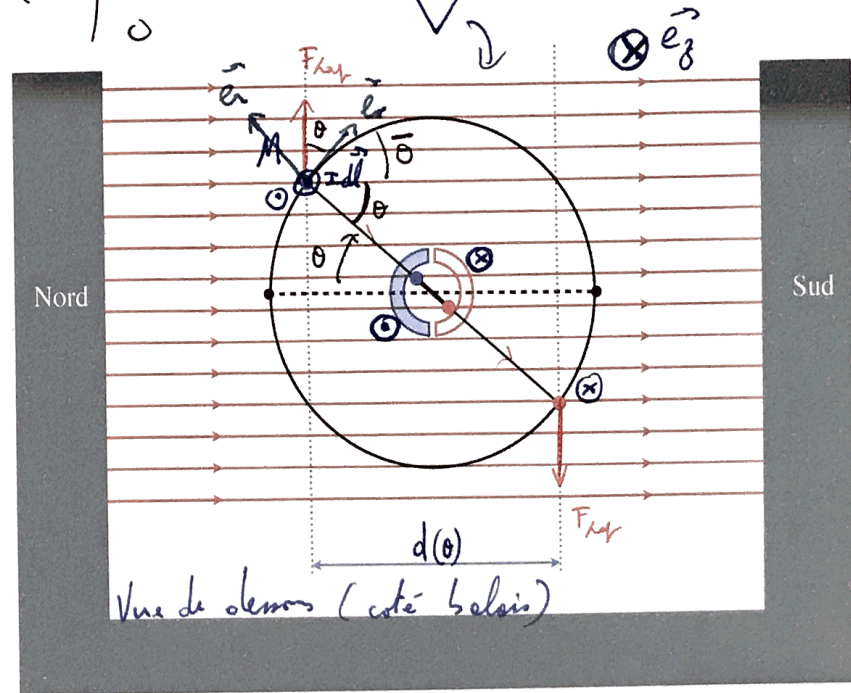 0
e_z
F_Lap
e_r
e_θ
θ
θ
M
I dl
θ
θ
Nord
Sud
F_Lap
d(θ)
Vue de dessous (coté balais)